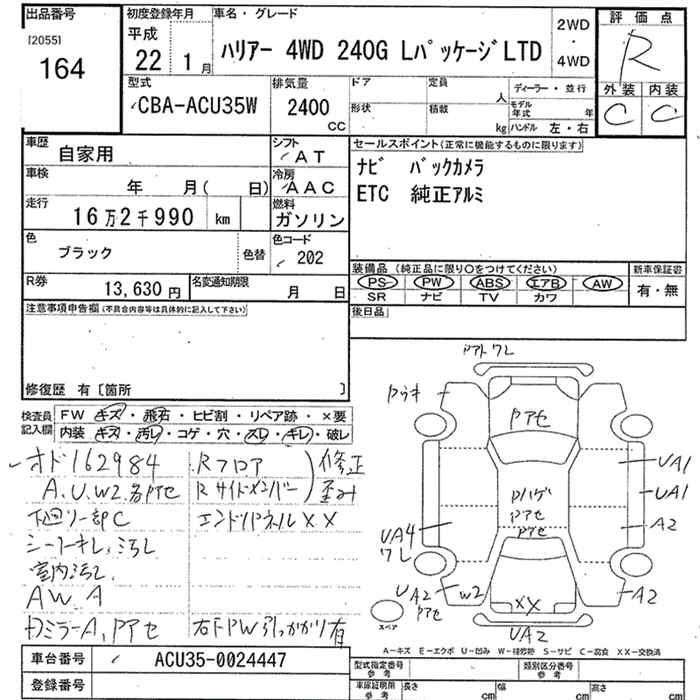 出品番号
[2055]
164
初度登録年月
平成
22
1月
車名・グレード
ハリアー 4WD 240G LパッケージLTD
2WD
・
4WD
評価点
R
外装
内装
C
C
型式
CBA-ACU35W
排気量
2400
CC
ドア
形状
定員
人
積載
kg
ディーラー・並行
モデル
年式
年
ハンドル 左・右
車歴
自家用
シフト
AT
車検
年 月( 日)
冷房
AAC
走行
16万2千990 km
燃料
ガソリン
色
ブラック
色替
色コード
202
R券
13,630 円
名変通知期限
月 日
セールスポイント(正常に機能するものに限ります)
ナビ バックカメラ
ETC 純正アルミ
装備品 (純正品に限り○をつけてください)
新車保証書
PS PW ABS エアB AW
有・無
SR ナビ TV カワ
後日品
注意事項申告欄(不具合内容等は具体的に記入して下さい)
修復歴 有 [箇所 ]
検査員
記入欄
FW キズ・飛石・ヒビ割・リペア跡・×要
内装 キズ・汚レ・コゲ・穴・スレ・キレ・破レ
オド162984
A.U.W2.各Pアセ
下回り一部C
シートキレ、汚レ
室内汚レ.
AW A
Dミラー A, Pアセ
Rフロア
Rサイドメンバー
修正
歪み
エンドパネルXX
右F PW引っかかり有
Pアト ワレ
Pウキ
Pアセ
Pハゲ
Pアセ
Pアセ
UA1
UA1
A2
UA4
ワレ
UA2
Pアセ
W2
XX
A2
UA2
スペア
A-キズ E-エクボ U-凹み W-補修跡 S-サビ C-腐食 XX-交換済
車台番号
ACU35-0024447
登録番号
型式指定番号
参考
類別区分番号
参考
車庫証明用
参考
長さ
cm
幅
cm
高さ
cm